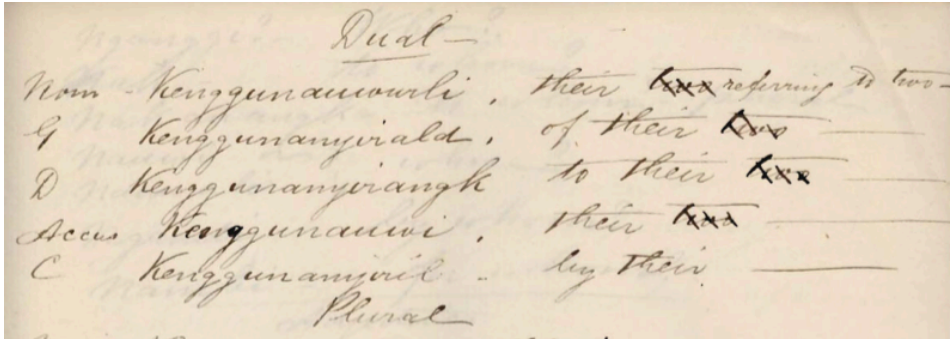 Dual —
Nom Kenggunauwurli, their two referring to two —
G Kenggunanyirald, of their two ——
D Kenggunanyirangk to their two ——
Accus Kenggunauwi, their two ——
C Kenggunanyiril - by their ——
Plural